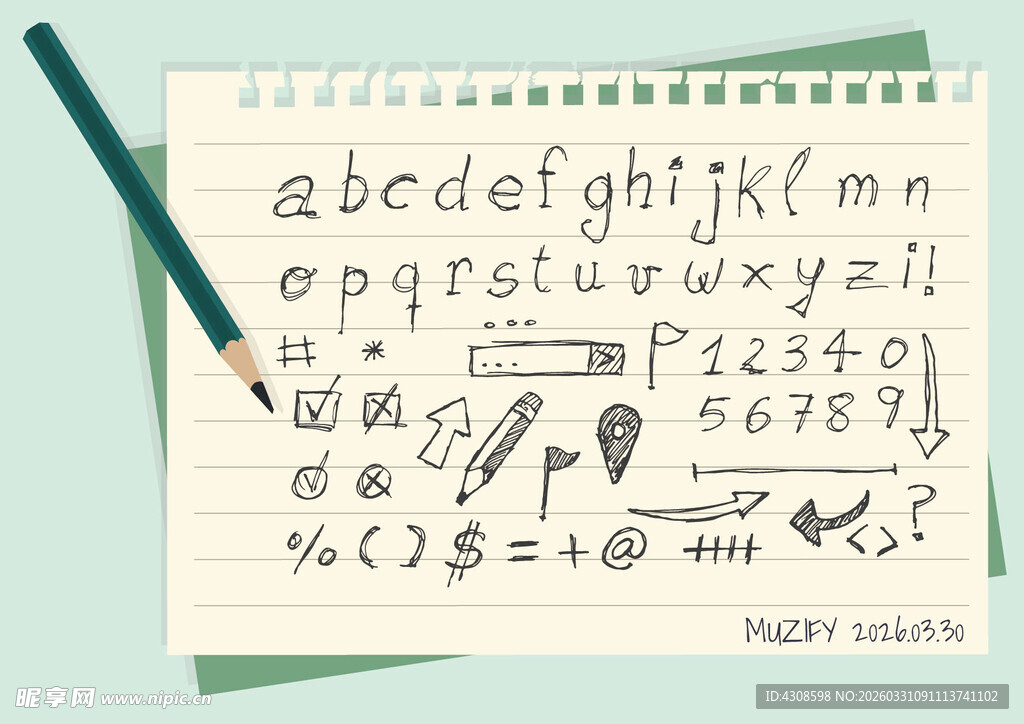 a b c d e f g h i j k l m n
o p q r s t u v w x y z i !
# *
...
1 2 3 4 0
5 6 7 8 9
?
% ( ) $ = + @ < >
MUZIFY 2026.03.30
昵享网 www.nipic.cn
ID:4308598 NO:20260331091113741102